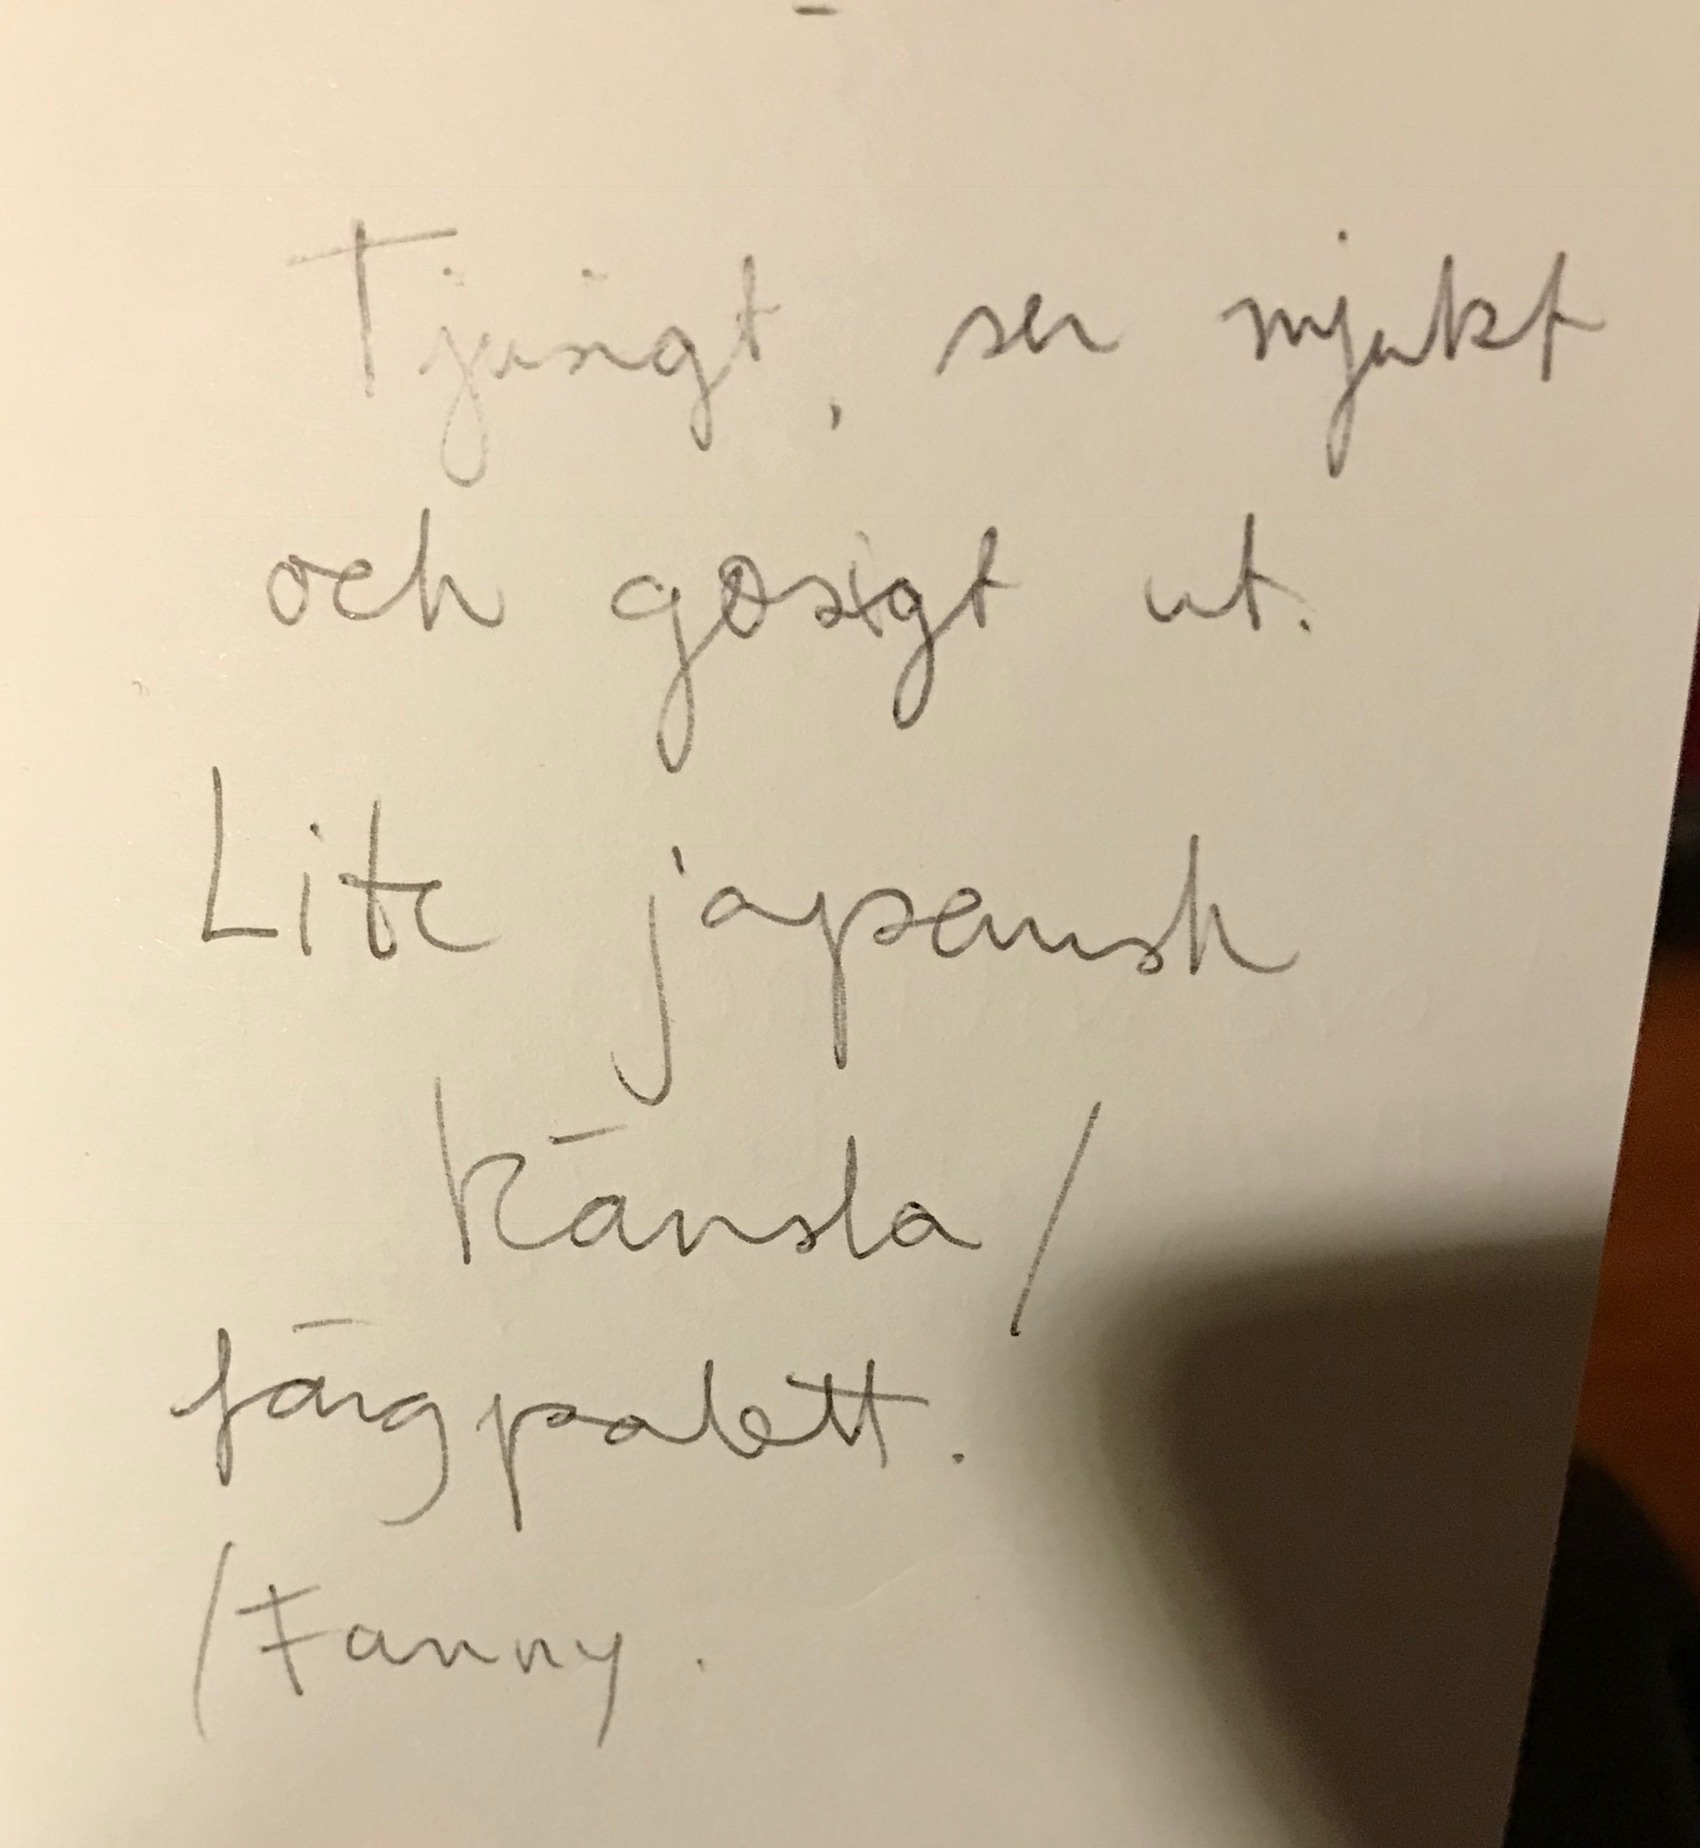 Tjusigt, ser mjukt
och gosigt ut.
Lite japansk
känsla/
färgpalett.
/Fanny.